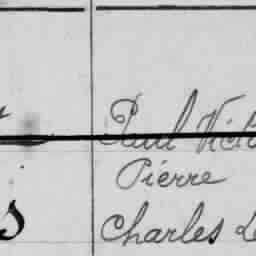 Paul Vict
Pierre
Charles Le